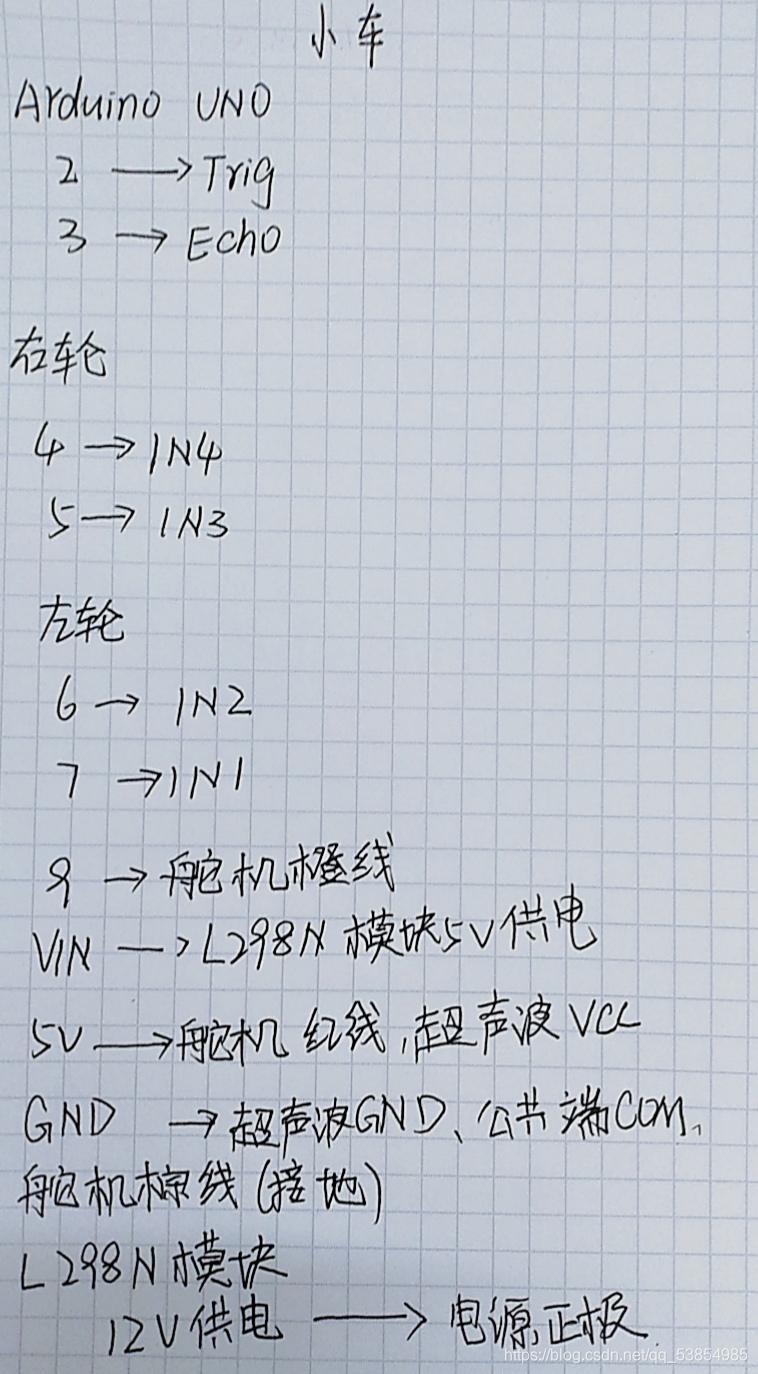 小车
Arduino UNO
2 → Trig
3 → Echo
右轮
4 → IN4
5 → IN3
左轮
6 → IN2
7 → IN1
9 → 舵机橙线
VIN → L298N 模块5V供电
5V → 舵机 红线,超声波 VCC
GND → 超声波GND、公共端COM、
舵机棕线(接地)
L298N 模块
12V供电 → 电源正极
https://blog.csdn.net/qq_53854985